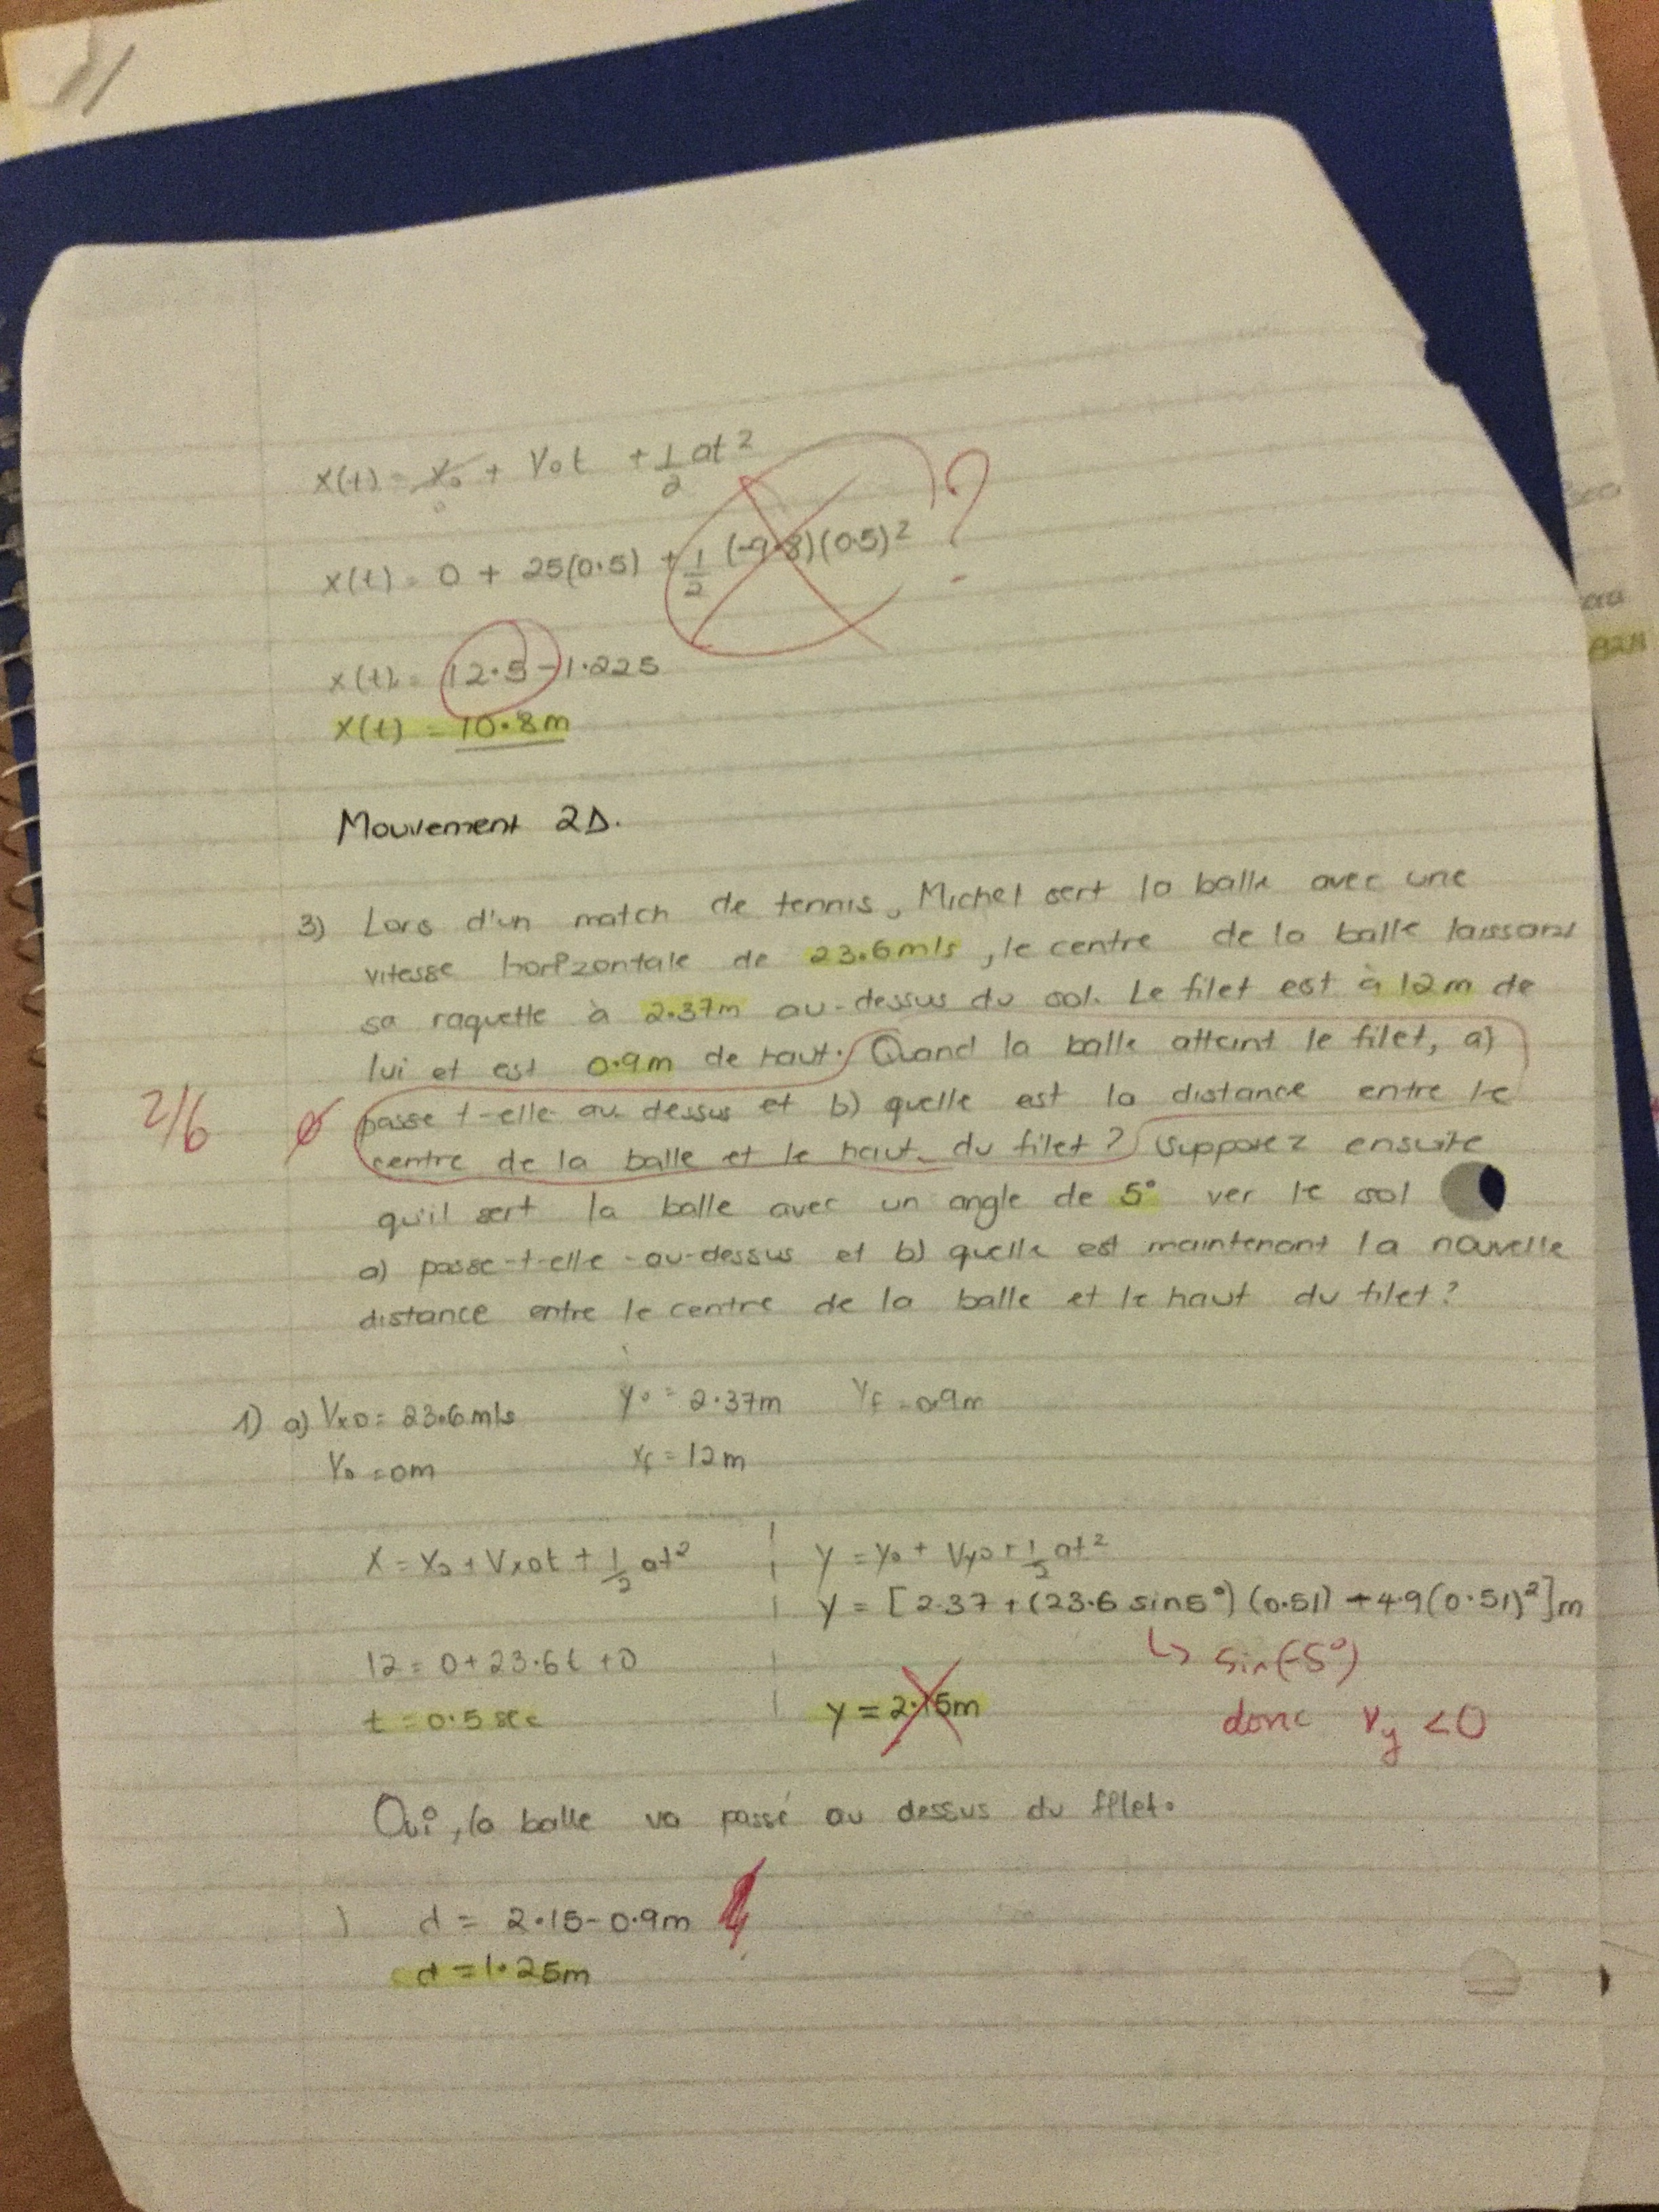 x(t) = x₀ + V₀t + 1/2 at²
x(t) = 0 + 25(0.5) + 1/2 (-9.8)(0.5)² ?
x(t) = 12.5 - 1.225
x(t) = 10.8m
Mouvement 2D.
3) Lors d'un match de tennis, Michel sert la balle avec une
vitesse horizontale de 23.6m/s, le centre de la balle laissant
sa raquette à 2.37m au-dessus du sol. Le filet est à 12m de
lui et est 0.9m de haut. Quand la balle atteint le filet, a)
2/6 passe t-elle au dessus et b) quelle est la distance entre le
centre de la balle et le haut du filet? Supposez ensuite
qu'il sert la balle avec un angle de 5° ver le sol
a) passe-t-elle-au-dessus et b) quelle est maintenant la nouvelle
distance entre le centre de la balle et le haut du filet?
1) a) Vx0 = 23.6m/s y₀ = 2.37m Yf = 0.9m
Y₀ = 0m xf = 12m
X = X₀ + Vx0t + 1/2 at² y = y₀ + Vy0 + 1/2 at²
y = [2.37 + (23.6 sin5°)(0.51) - 4.9(0.51)²]m
12 = 0 + 23.6t + 0 ↳ sin(-5°)
t = 0.5 sec y = 2.15m donc Vy < 0
Oui, la balle va passé au dessus du filet.
) d = 2.15-0.9m
d = 1.25m